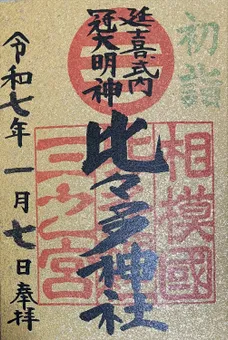 初詣
延喜式内
冠大明神
相模國
三之宮
比々多神社
令和七年 一月七日 奉拝